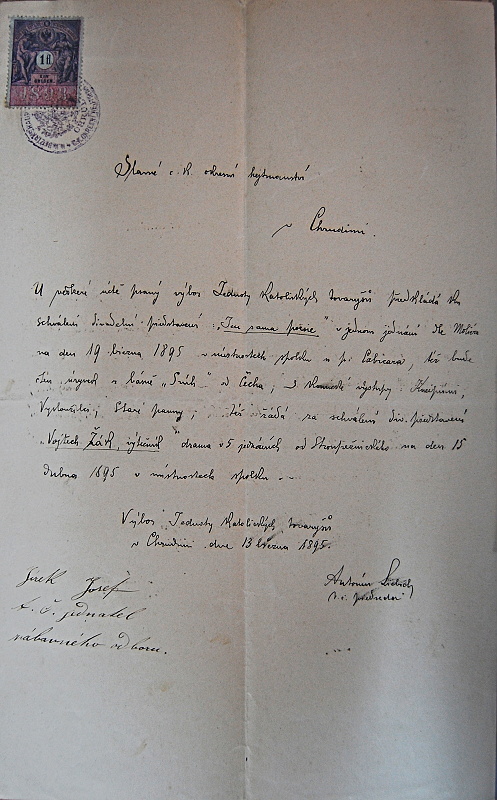 1 fl
Slavné c. k. okresní hejtmanství
v Chrudimi.
U veškeré úctě psaný výbor Jednoty katolických tovaryšů předkládá ku
schválení divadelní představení: „Ten sama" v jednom jednání dle
na den 19. března 1895 v místnostech spolku u p. též bude
čten úryvek z básně „Sníh" od Čecha; výstupy:
Vysloužilci; Staré panny; též žádá za schválení div. představení
„Vojtěch Žák, výtečník" drama v 5 jednáních od Stroupežnického na den 15
dubna 1895 v místnostech spolku.
Výbor Jednoty katolických tovaryšů
v Chrudimi dne 13 března 1895.
Jirek Josef
t. č. jednatel
zábavného odboru.
Antonín
t. č. předseda